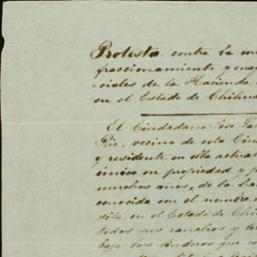 Protesta contra la
fraccionamiento y
ciales de la Hacienda
en el Estado de Chihua
El Ciudadano José
vecino de esta Ciu
y residente en ella actual
único en propiedad y
muchos años, de la ha
conocida con el nombre
sita en el Estado de Chi
todos sus ranchos y
bajo los linderos que